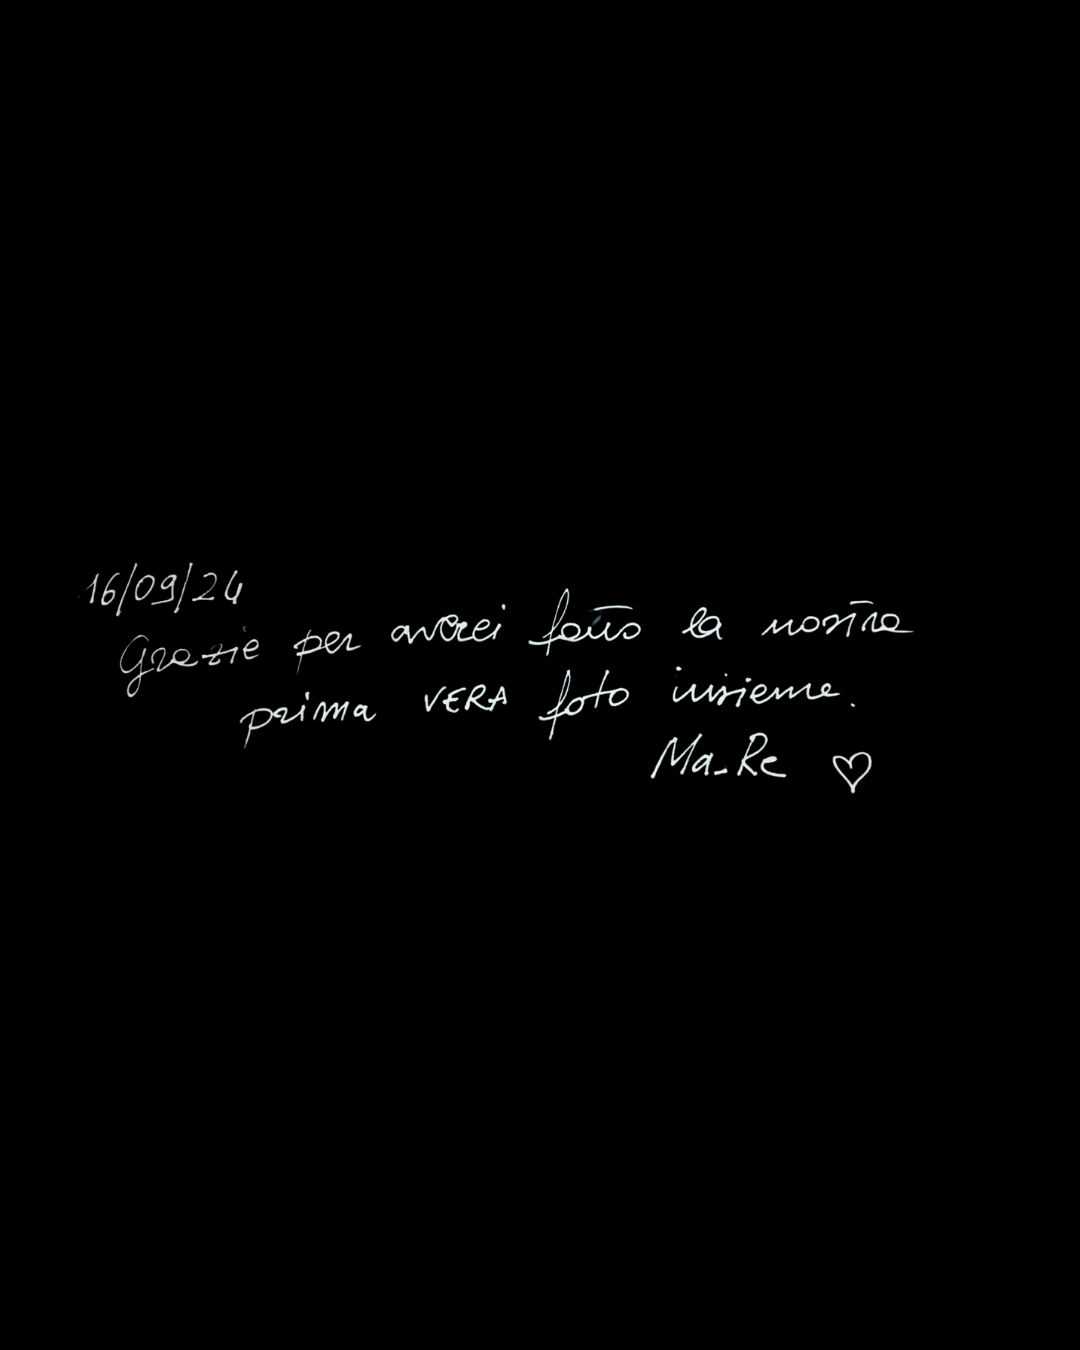 16/09/24
Grazie per averci fatto la nostra
prima VERA foto insieme.
Ma-Re ♡